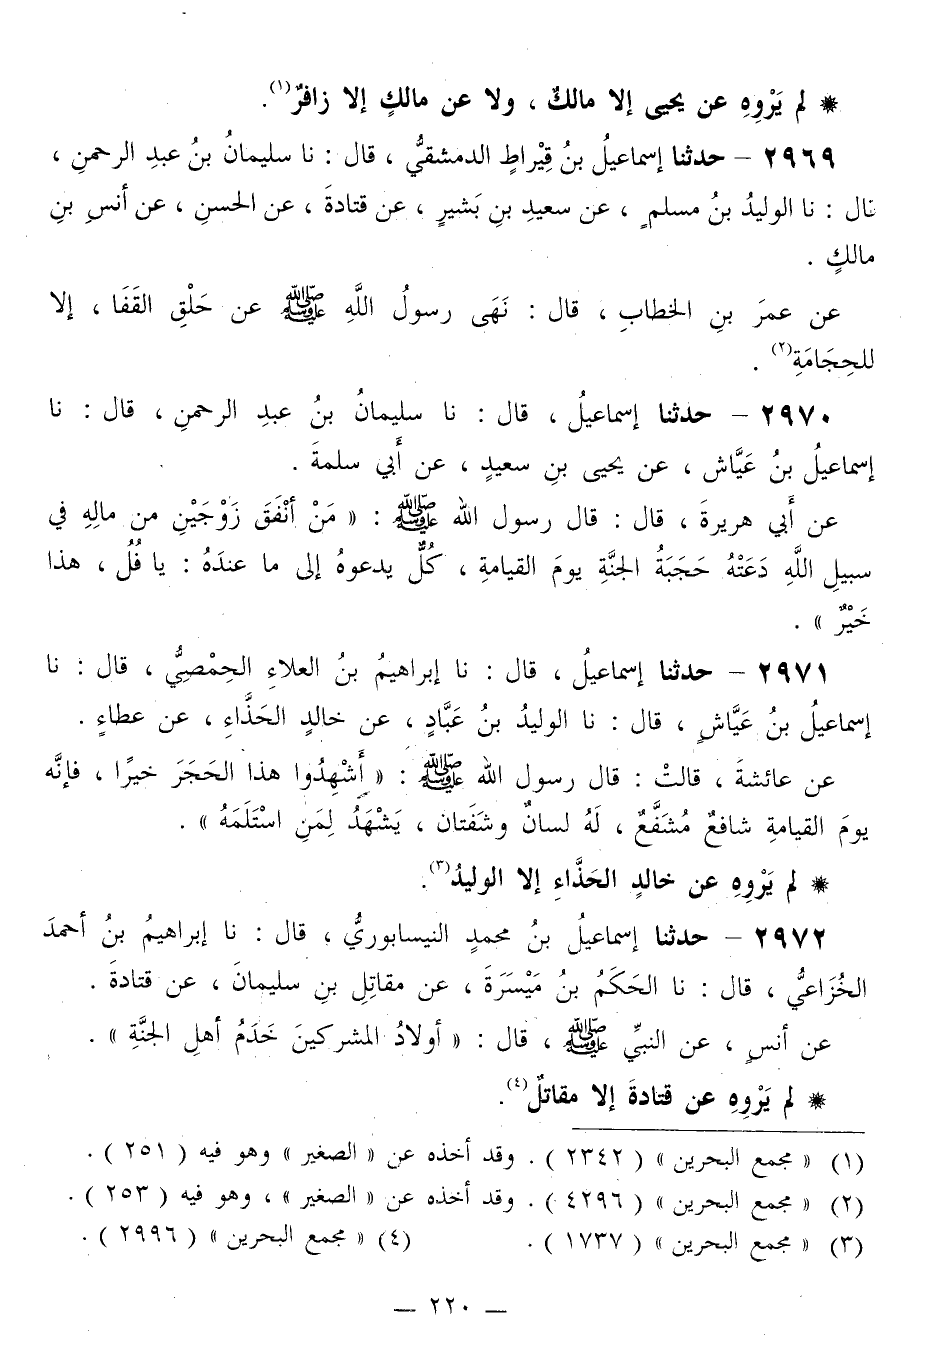 * لم يَرْوِهِ عن يحيى إلا مالكٌ ، ولا عن مالكٍ إلا زافرٌ(١).
٢٩٦٩ – حدثنا إسماعيلُ بنُ قِيْراطٍ الدمشقيُّ ، قال : نا سليمانُ بنُ عبدِ الرحمنِ ،
قال : نا الوليدُ بنُ مسلمٍ ، عن سعيدِ بنِ بَشيرٍ ، عن قتادةَ ، عن الحسنِ ، عن أنسِ بنِ
مالكٍ .
عن عمرَ بنِ الخطابِ ، قال : نَهَى رسولُ اللَّهِ ﷺ عن حَلْقِ القَفَا ، إلا
للحِجَامَةِ(٢) .
٢٩٧٠ – حدثنا إسماعيلُ ، قال : نا سليمانُ بنُ عبدِ الرحمنِ ، قال : نا
إسماعيلُ بنُ عَيَّاش ، عن يحيى بنِ سعيدٍ ، عن أَبي سلمةَ .
عن أَبي هريرةَ ، قال : قال رسول الله ﷺ : « مَنْ أَنْفَقَ زَوْجَيْنِ من مالِهِ في
سبيلِ اللَّهِ دَعَتْهُ حَجَبَةُ الجنَّةِ يومَ القيامةِ ، كُلٌّ يدعوهُ إلى ما عندَهُ : يا فُلُ ، هذا
خَيْرٌ » .
٢٩٧١ – حدثنا إسماعيلُ ، قال : نا إبراهيمُ بنُ العلاءِ الحِمْصِيُّ ، قال : نا
إسماعيلُ بنُ عَيَّاشٍ ، قال : نا الوليدُ بنُ عَبَّادٍ ، عن خالدٍ الحَذَّاءِ ، عن عطاءٍ .
عن عائشةَ ، قالتْ : قال رسول الله ﷺ : « أَشْهِدُوا هذا الحَجَرَ خيرًا ، فإنَّه
يومَ القيامةِ شافعٌ مُشَفَّعٌ ، لَهُ لسانٌ وشَفَتان ، يَشْهَدُ لِمَنِ اسْتَلَمَهُ » .
* لم يَرْوِهِ عن خالدٍ الحَذَّاءِ إلا الوليدُ(٣).
٢٩٧٢ – حدثنا إسماعيلُ بنُ محمدٍ النيسابوريُّ ، قال : نا إبراهيمُ بنُ أحمدَ
الخُزَاعيُّ ، قال : نا الحَكَمُ بنُ مَيْسَرَةَ ، عن مقاتِلِ بنِ سليمانَ ، عن قتادةَ .
عن أنسٍ ، عن النبيِّ ﷺ ، قال : « أولادُ المشركينَ خَدَمُ أهلِ الجنَّةِ » .
* لم يَرْوِهِ عن قتادةَ إلا مقاتلٌ(٤).
(١) « مجمع البحرين » ( ٢٣٤٢ ) . وقد أخذه عن « الصغير » وهو فيه ( ٢٥١ ) .
(٢) « مجمع البحرين » ( ٤٢٩٦ ) . وقد أخذه عن « الصغير » ، وهو فيه ( ٢٥٣ ) .
(٣) « مجمع البحرين » ( ١٧٣٧ ) . (٤) « مجمع البحرين » ( ٢٩٩٦ ) .
— ٢٢٠ —